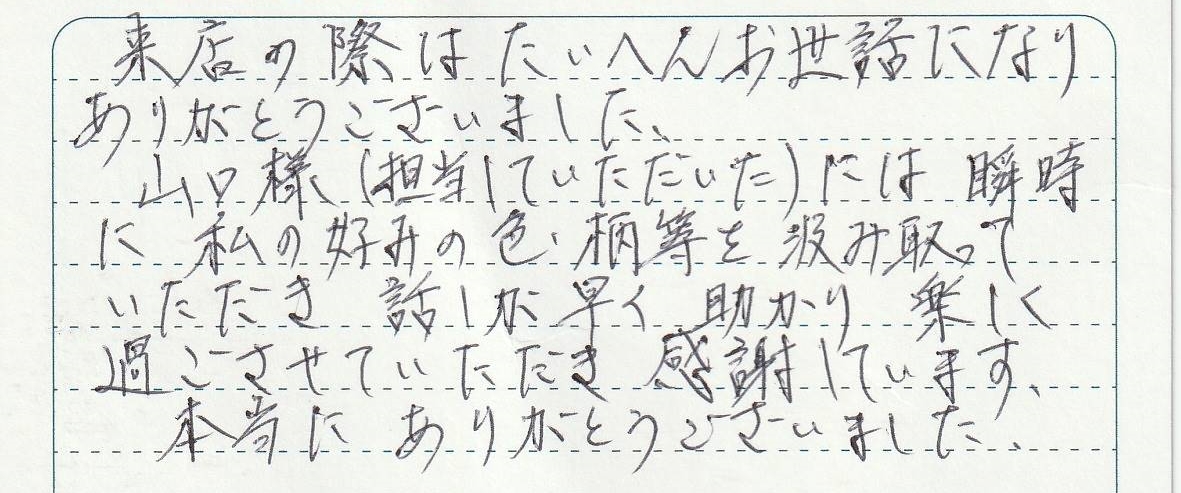 来店の際はたいへんお世話になり
ありがとうございました、
山口様(担当していただいた)には 瞬時
に 私の好みの色・柄等を 汲み取って
いただき 話しが早く 助かり 楽しく
過ごさせていただき 感謝しています、
本当に ありがとうございました、